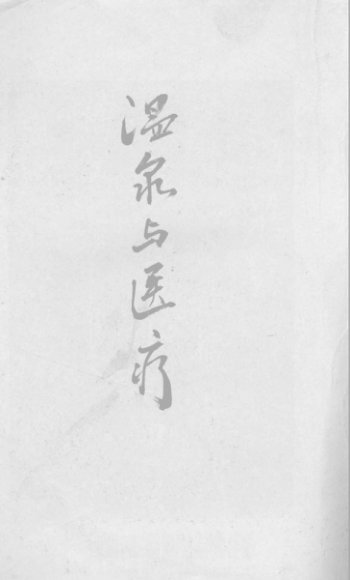 温泉与医疗